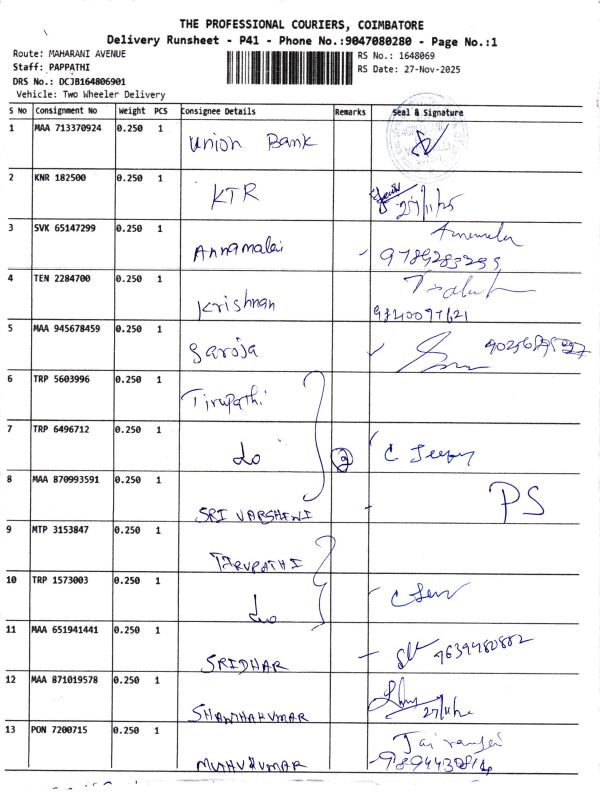 THE PROFESSIONAL COURIERS, COIMBATORE
Delivery Runsheet - P41 - Phone No.:9047080280 - Page No.:1
Route: MAHARANI AVENUE
RS No.: 1648069
Staff: PAPPATHI
RS Date: 27-Nov-2025
DRS No.: DCJB164806901
Vehicle: Two Wheeler Delivery
S No Consignment No Weight PCS Consignee Details Remarks Seal & Signature
1 MAA 713370924 0.250 1 Union Bank
2 KNR 182500 0.250 1 KTR 27/11/25
3 SVK 65147299 0.250 1 Annamalai
4 TEN 2284700 0.250 1 Krishnan
5 MAA 945678459 0.250 1 Saroja
6 TRP 5603996 0.250 1 Tirupathi
7 TRP 6496712 0.250 1 do
8 MAA 870993591 0.250 1 SRI VARSHINI PS
9 MTP 3153847 0.250 1 TIRUPATHI
10 TRP 1573003 0.250 1 do
11 MAA 651941441 0.250 1 SRIDHAR
12 MAA 871019578 0.250 1 SHANTHAKUMAR
13 PON 7200715 0.250 1 MUTHUKUMAR